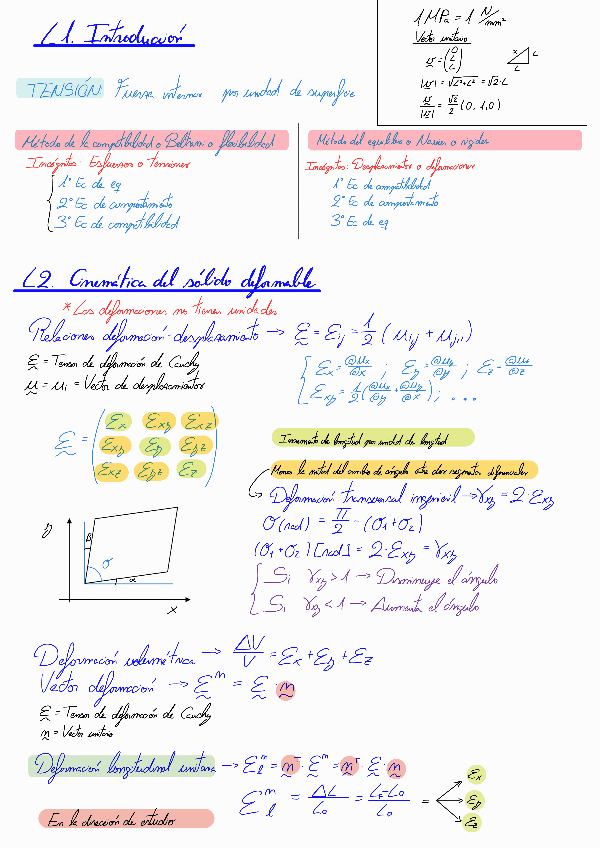 L1. Introducción
1 MPa = 1 N/mm²
Vector unitario
v = (0 L L)
|v| = √L²+L² = √2·L
v/|v| = √2/2 (0, 1, 0)
x L
L
TENSIÓN Fuerza interna por unidad de superficie
Método de la compatibilidad o Beltrami o flexibilidad
Incógnita: Esfuerzos o tensiones
1º Ec de eq
2º Ec de comportamiento
3º Ec de compatibilidad
Método del equilibrio o Navier o rigidez
Incógnitas: Desplazamientos o deformaciones
1º Ec de compatibilidad
2º Ec de comportamiento
3º Ec de eq
L2. Cinemática del sólido deformable
* Las deformaciones no tienen unidades
Relaciones deformación-desplazamiento → ε = εij = 1/2 (μi,j + μj,i)
ε = Tensor de deformación de Cauchy
μ = μi = Vector de desplazamientos
εx = ∂μx/∂x ; εy = ∂μy/∂y ; εz = ∂μz/∂z
εxy = 1/2 (∂μx/∂y + ∂μy/∂x) ; ...
ε = (εx εxy εxz
εxy εy εyz
εxz εyz εz)
Incremento de longitud por unidad de longitud
Menos la mitad del cambio de ángulo entre dos segmentos diferenciales
Deformación transversal ingenieril → γxy = 2·εxy
σ(rad) = π/2 - (σ1+σ2)
(σ1+σ2)[rad] = 2·εxy = γxy
Si γxy > 1 → Disminuye el ángulo
Si γxy < 1 → Aumenta el ángulo
y
β
σ
α
x
Deformación volumétrica → ΔV/V = εx + εy + εz
Vector deformación → εⁿ = ε · n
ε = Tensor de deformación de Cauchy
n = Vector unitario
Deformación longitudinal unitaria → εlⁿ = nᵀ · εⁿ = nᵀ · ε · n
εlⁿ = ΔL/L0 = Lf-L0/L0 =
εx
εy
εz
En la dirección de estudio